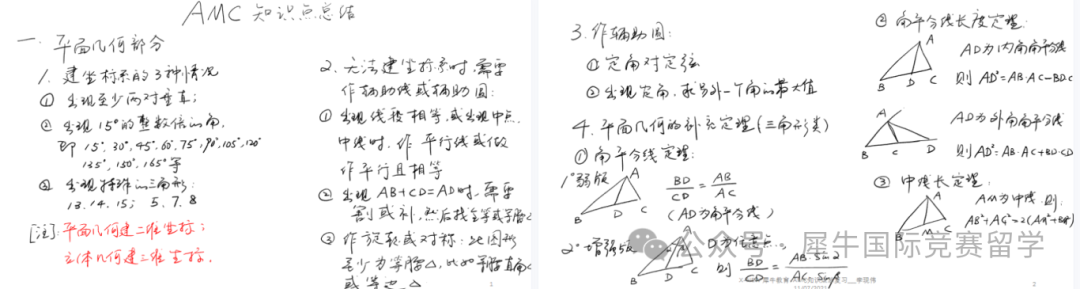 AMC 知识点总结
一. 平面几何部分
1. 建坐标系的3种情况
① 出现至少两对垂直；
② 出现15°的整数倍的角，
即 15°, 30°, 45°, 60°, 75°, 90°, 105°, 120°
135°, 150°, 165° 等
③ 出现特殊的三角形：
13. 14. 15； 5. 7. 8
[注]：平面几何建二维坐标；
立体几何建三维坐标.
2. 无法建坐标系时，需要
作辅助线或辅助圆：
① 出现线段相等，或出现中点，
中线时，作平行线或做
作平行且相等
② 出现 AB+CD=AD时，需要
割或补，然后找全等或等腰△
③ 作旋转或对称：此图形
至少为等腰△，比如等腰直角△
或等边△
1
3. 作辅助圆：
① 定角对定弦
② 出现定角，求另外一个角的最大值
4. 平面几何的补充定理（三角形类）
① 角平分线定理：
1° 弱版
A
B D C
BD/CD = AB/AC
（AD为角平分线）
2° 增强版
A
B D C
D为任意点，
则 BD/CD = AB·Sinα/AC·Sinβ
② 角平分线长度定理：
A
B D C
AD为内角角平分线
则 AD²=AB·AC-BD·DC
A
B C D
AD为外角角平分线
则AD²=AB·AC+BD·CD
③ 中线长定理：
A
B M C
AM为中线 则：
AB²+AC²=2(AM²+BM²)
公众号 · 犀牛国际竞赛留学
2